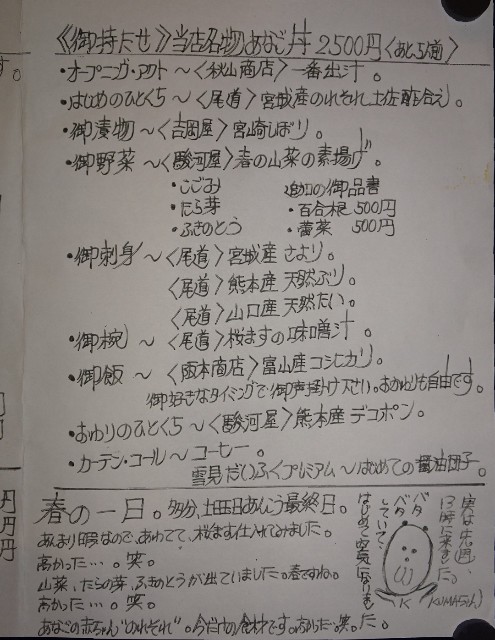 《御待たせ》当店名物あなご丼 2500円〈あと5人前〉
・オープニング・アクト〜〈秋山商店〉一番出汁。
・はじめのひとくち〜〈尾道〉宮城産のれそれ土佐酢合え。
・御漬物〜〈吉岡屋〉宮崎しぼり。
・御野菜〜〈駿河屋〉春の山菜の素揚げ。
・こごみ
・たら芽
・ふきのとう
追加の御品書
・百合根 500円
・蕾菜 500円
・御刺身〜〈尾道〉宮城産 さより。
〈尾道〉熊本産 天然ぶり。
〈尾道〉山口産 天然たい。
・御椀〜〈尾道〉桜ますの味噌汁。
・御飯〜〈阪本商店〉富山産コシヒカリ。
御好きなタイミングで御声掛け下さい。おかわりも自由です。
・おわりのひとくち〜〈駿河屋〉熊本産 デコポン。
・カーテン・コール〜コーヒー。
雪見だいふくプレミアム〜はじめての醤油団子。
春の一日。多分、土田西日あんこう最終日。
あまり暇なので、あわてて、桜ます仕入れてみました。
高かった…。笑。
山菜、たらの芽、ふきのとうが出ていました。春ですね。
高かった…。笑。
あなごの赤ちゃん“のれそれ”。今だけの食材です。高かった…笑。た。
実は先週、
13時に来ました。
バタバタ
していて、
はじめて空気になりまし
K
(KUMAちゃん)
円
円
円
す。